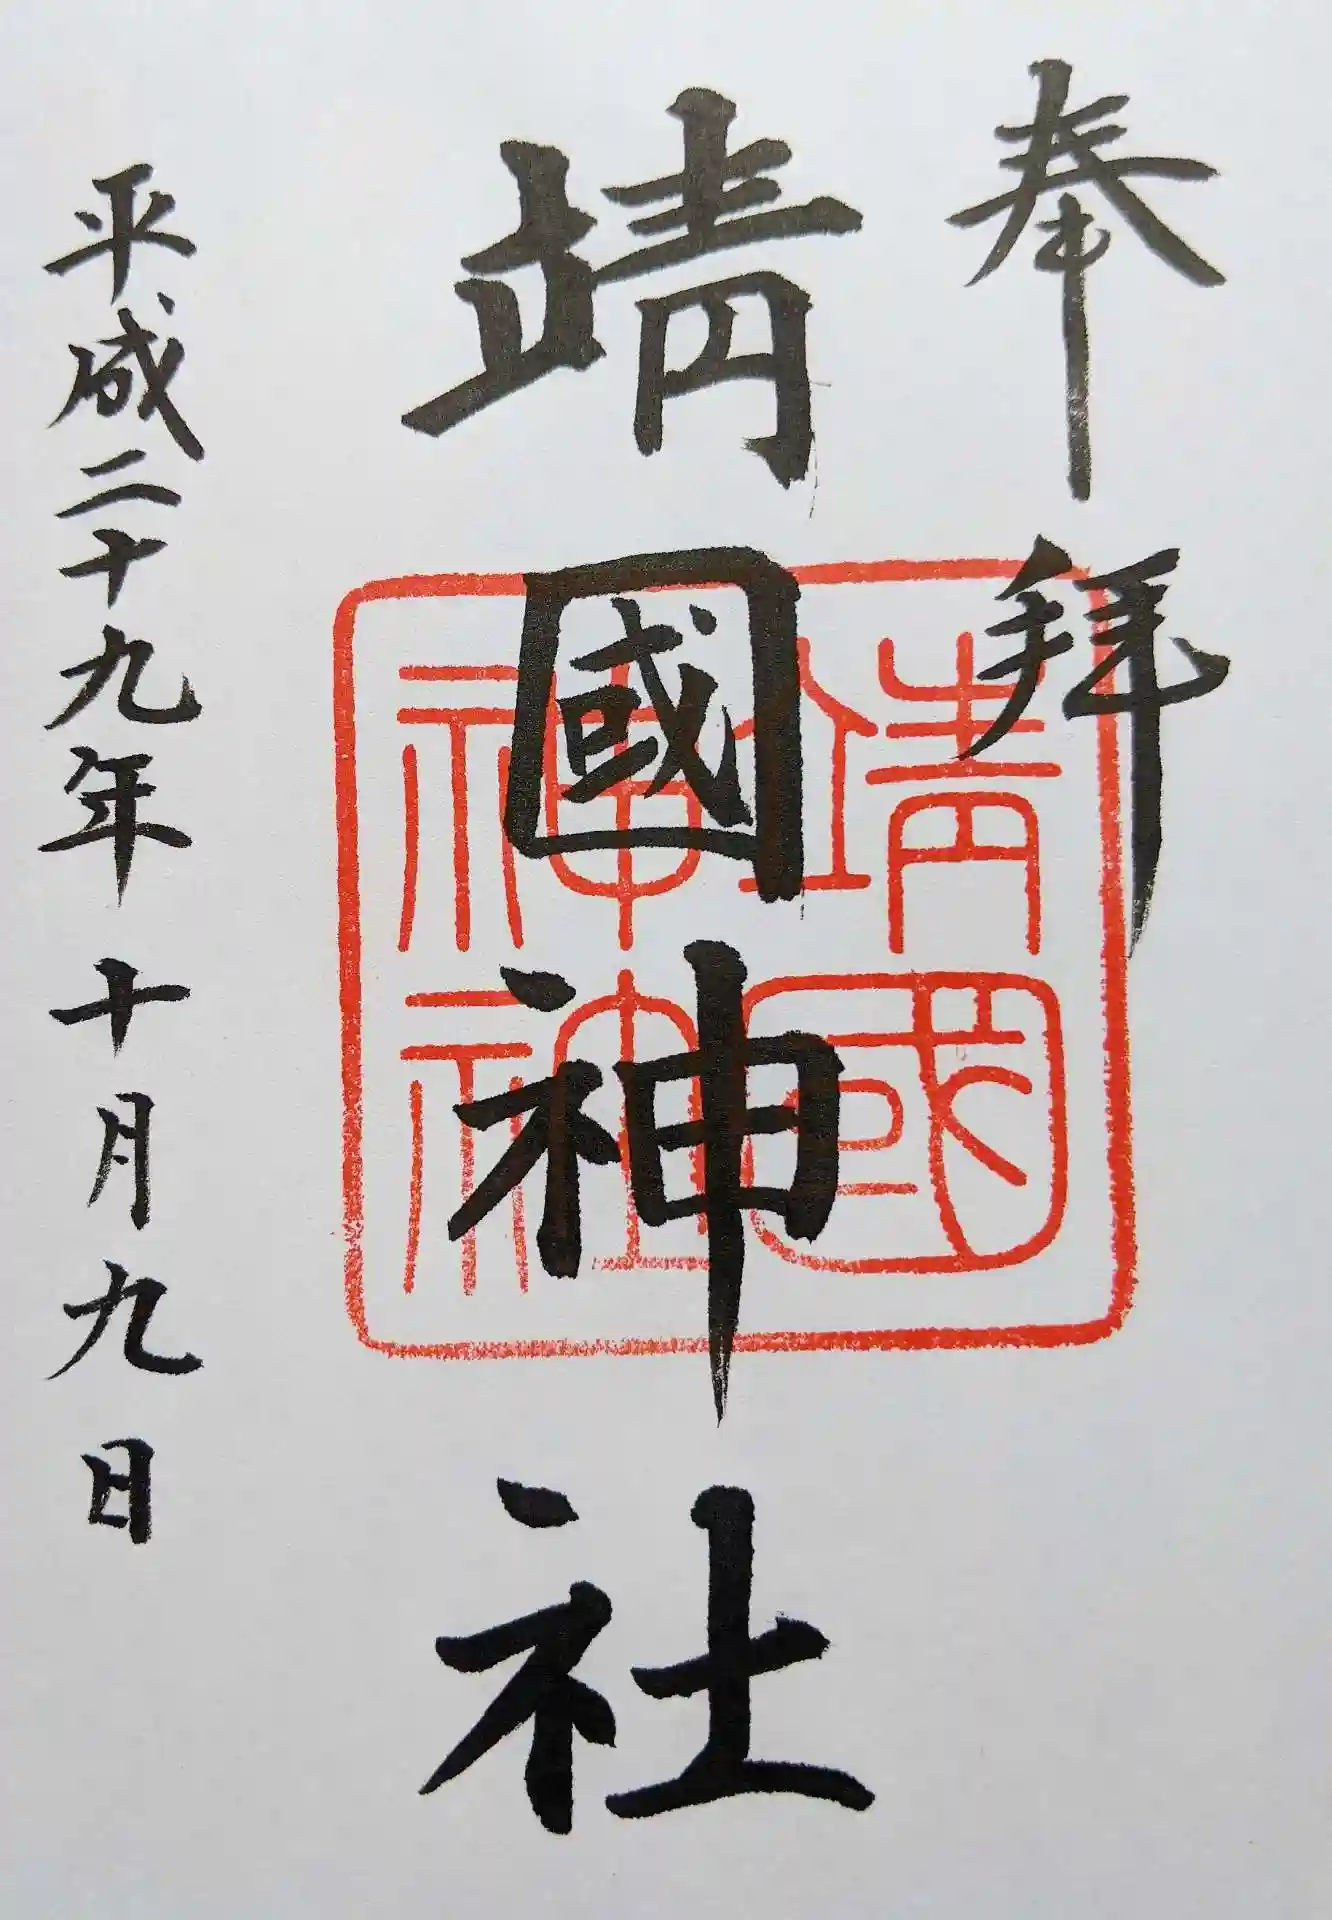 奉拝
靖國神社
靖國
神社
平成二十九年十月九日